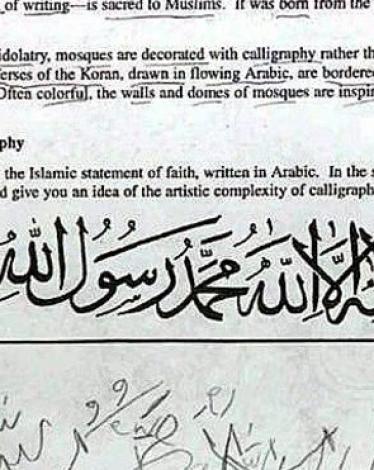 of writing—is sacred to Muslims. It was born from the
idolatry, mosques are decorated with calligraphy rather th
erses of the Koran, drawn in flowing Arabic, are bordered
Often colorful, the walls and domes of mosques are inspir
phy
the Islamic statement of faith, written in Arabic. In the s
d give you an idea of the artistic complexity of calligraph
ه إلا الله محمد رسول الله